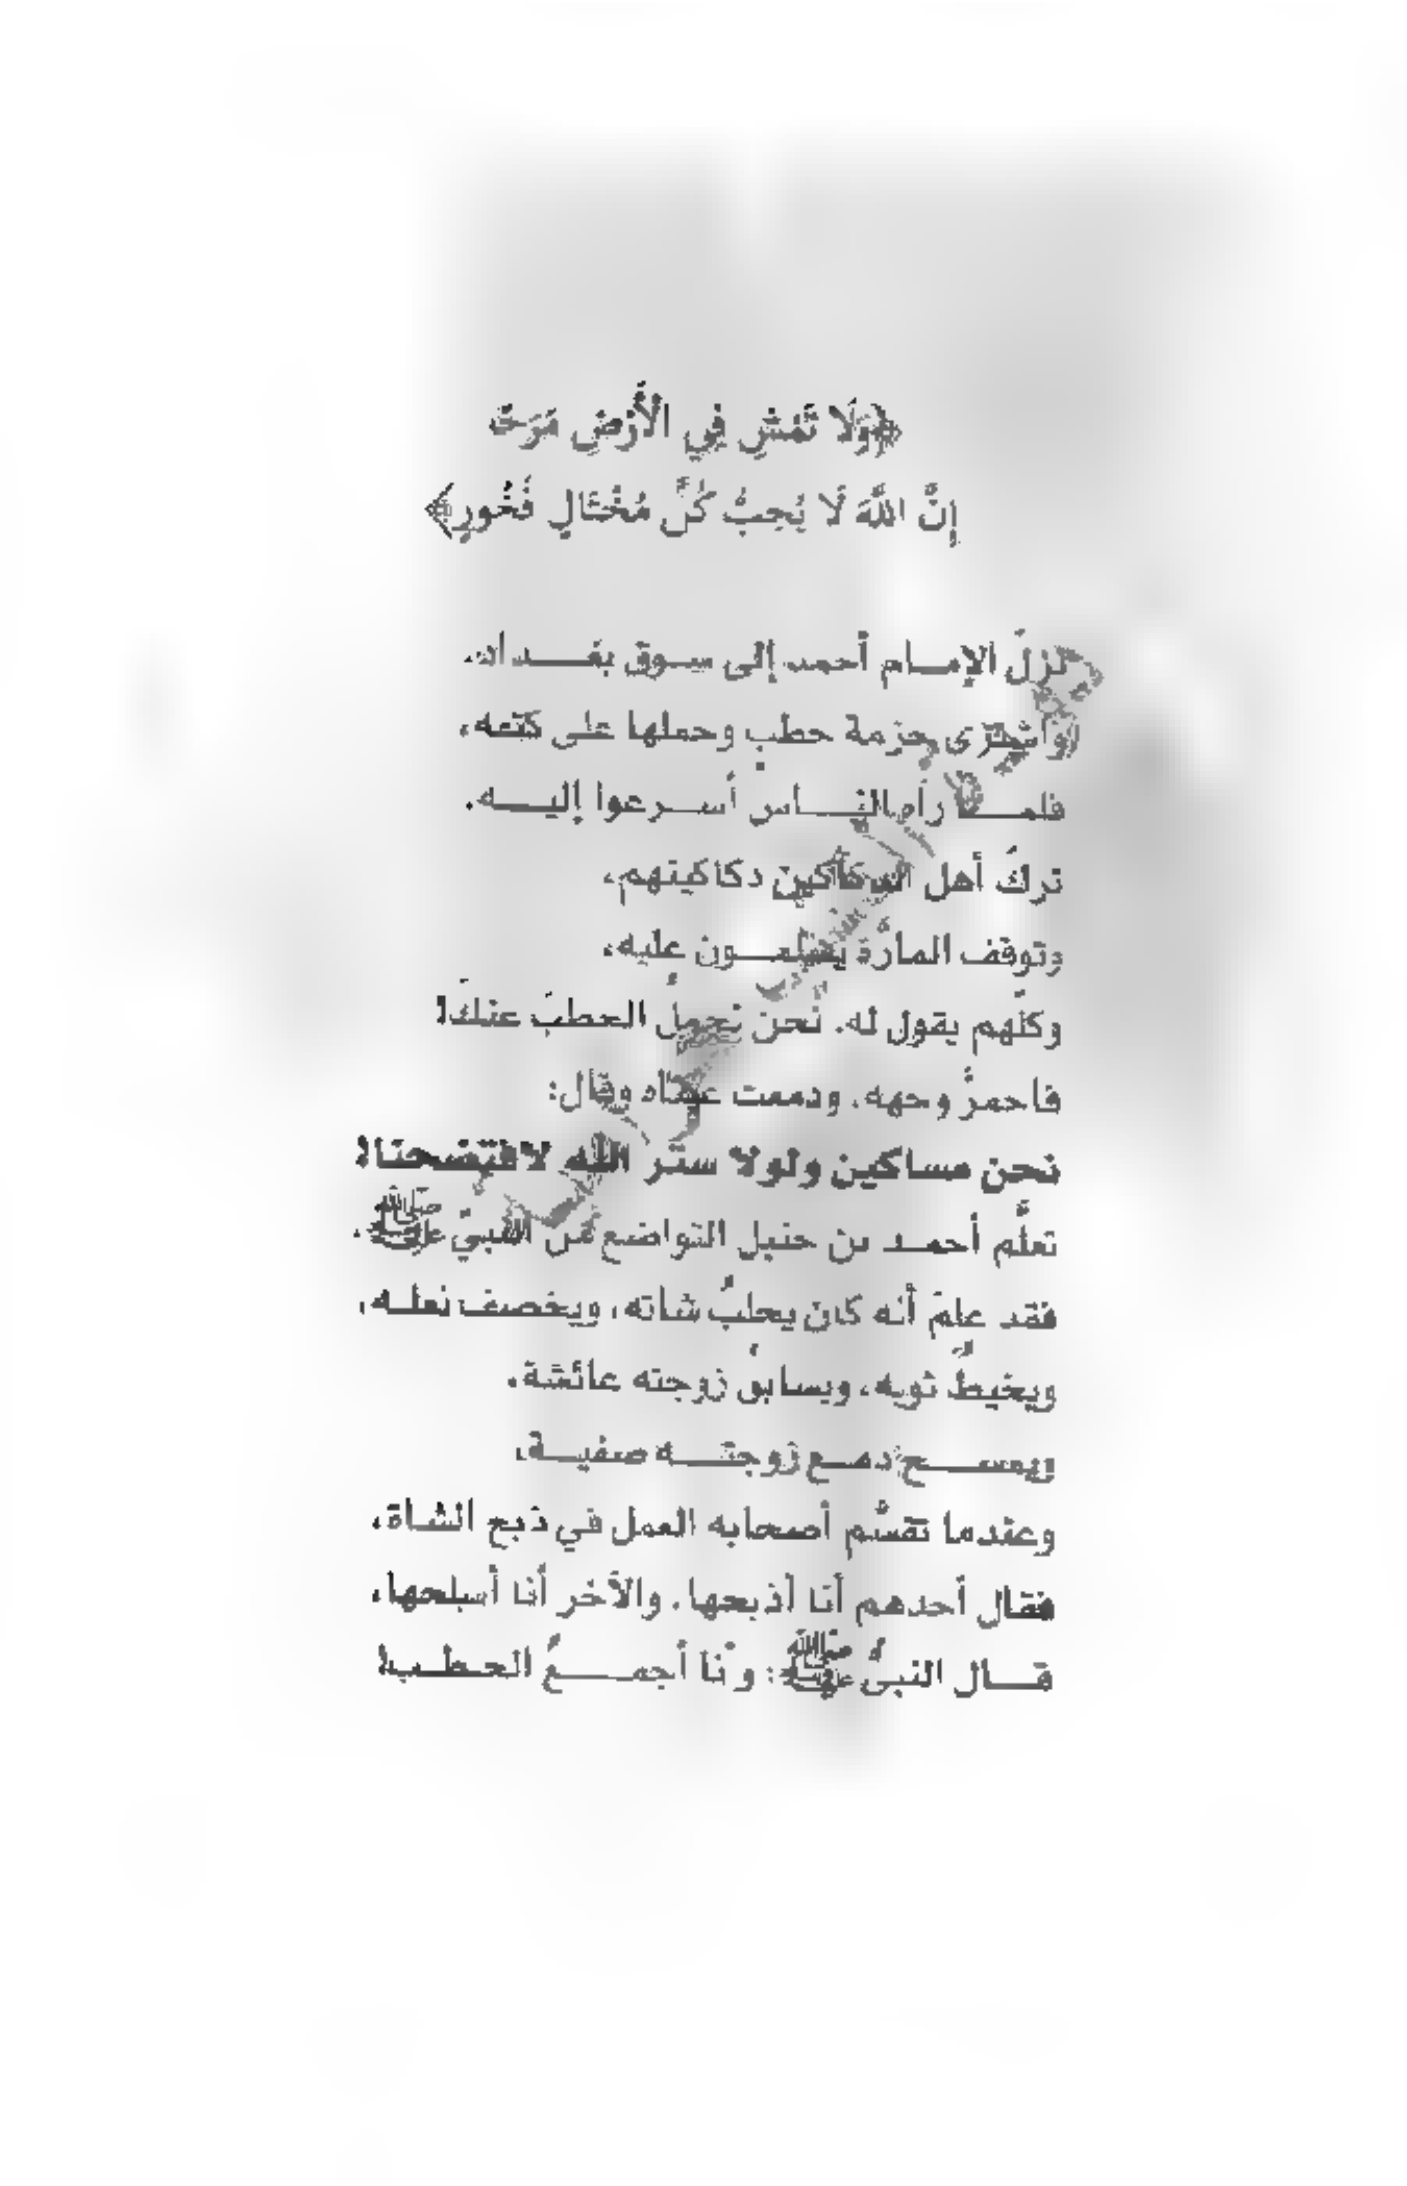 ﴿وَلَا تَمْشِ فِي الْأَرْضِ مَرَحًا
إِنَّ اللَّهَ لَا يُحِبُّ كُلَّ مُخْتَالٍ فَخُورٍ﴾
نزلَ الإمـام أحمد إلى سـوق بغـــداد،
واشترى حزمة حطبٍ وحملها على كتفه،
فلمـــا رآه النـــاس أســرعوا إليـــه.
تركَ أهل الدكاكين دكاكينهم،
وتوقف المارَّة يسلمــون عليه،
وكلّهم يقول له: نحن نحملُ الحطبَ عنكَ!
فاحمرَّ وجهه، ودمعت عيناه وقال:
نحن مساكين ولولا ستر الله لافتضحنا!
تعلَّم أحمـد بن حنبل التواضع من النبيِّ ﷺ،
فقد علمَ أنه كان يحلبُ شاته، ويخصف نعلـه،
ويخيطُ ثوبه، ويسابقُ زوجته عائشة،
ويمســـح دمـع زوجتـــه صفيــة،
وعندما تقسَّم أصحابه العمل في ذبح الشاة،
فقال أحدهم أنا أذبحها، والآخر أنا أسلخها،
قــال النبيُّ ﷺ: وأنا أجمـــعُ الحـطـب!